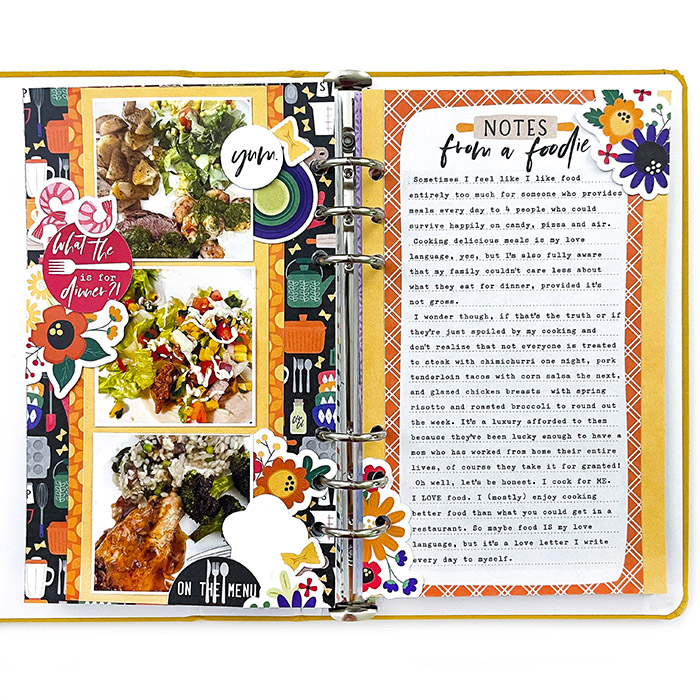 yum.
What the
is for
dinner?!
ON THE MENU
NOTES
from a foodie
Sometimes I feel like I like food
entirely too much for someone who provides
meals every day to 4 people who could
survive happily on candy, pizza and air.
Cooking delicious meals is my love
language, yes, but I'm also fully aware
that my family couldn't care less about
what they eat for dinner, provided it's
not gross.
I wonder though, if that's the truth or if
they're just spoiled by my cooking and
don't realize that not everyone is treated
to steak with chimichurri one night, pork
tenderloin tacos with corn salsa the next,
and glazed chicken breasts with spring
risotto and roasted broccoli to round out
the week. It's a luxury afforded to them
because they've been lucky enough to have a
mom who has worked from home their entire
lives, of course they take it for granted!
Oh well, let's be honest. I cook for ME.
I LOVE food. I (mostly) enjoy cooking
better food than what you could get in a
restaurant. So maybe food IS my love
language, but it's a love letter I write
every day to myself.